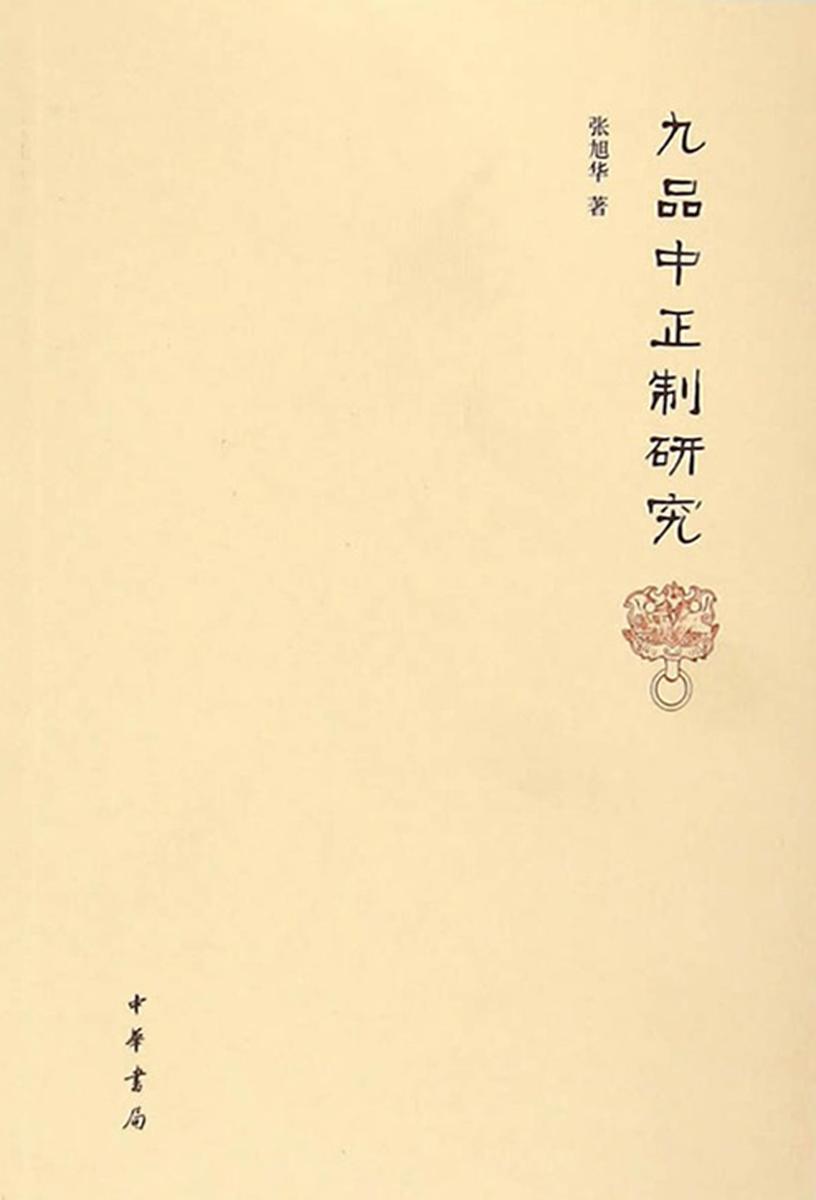 九品中正制研究
张旭华 著
中華書局